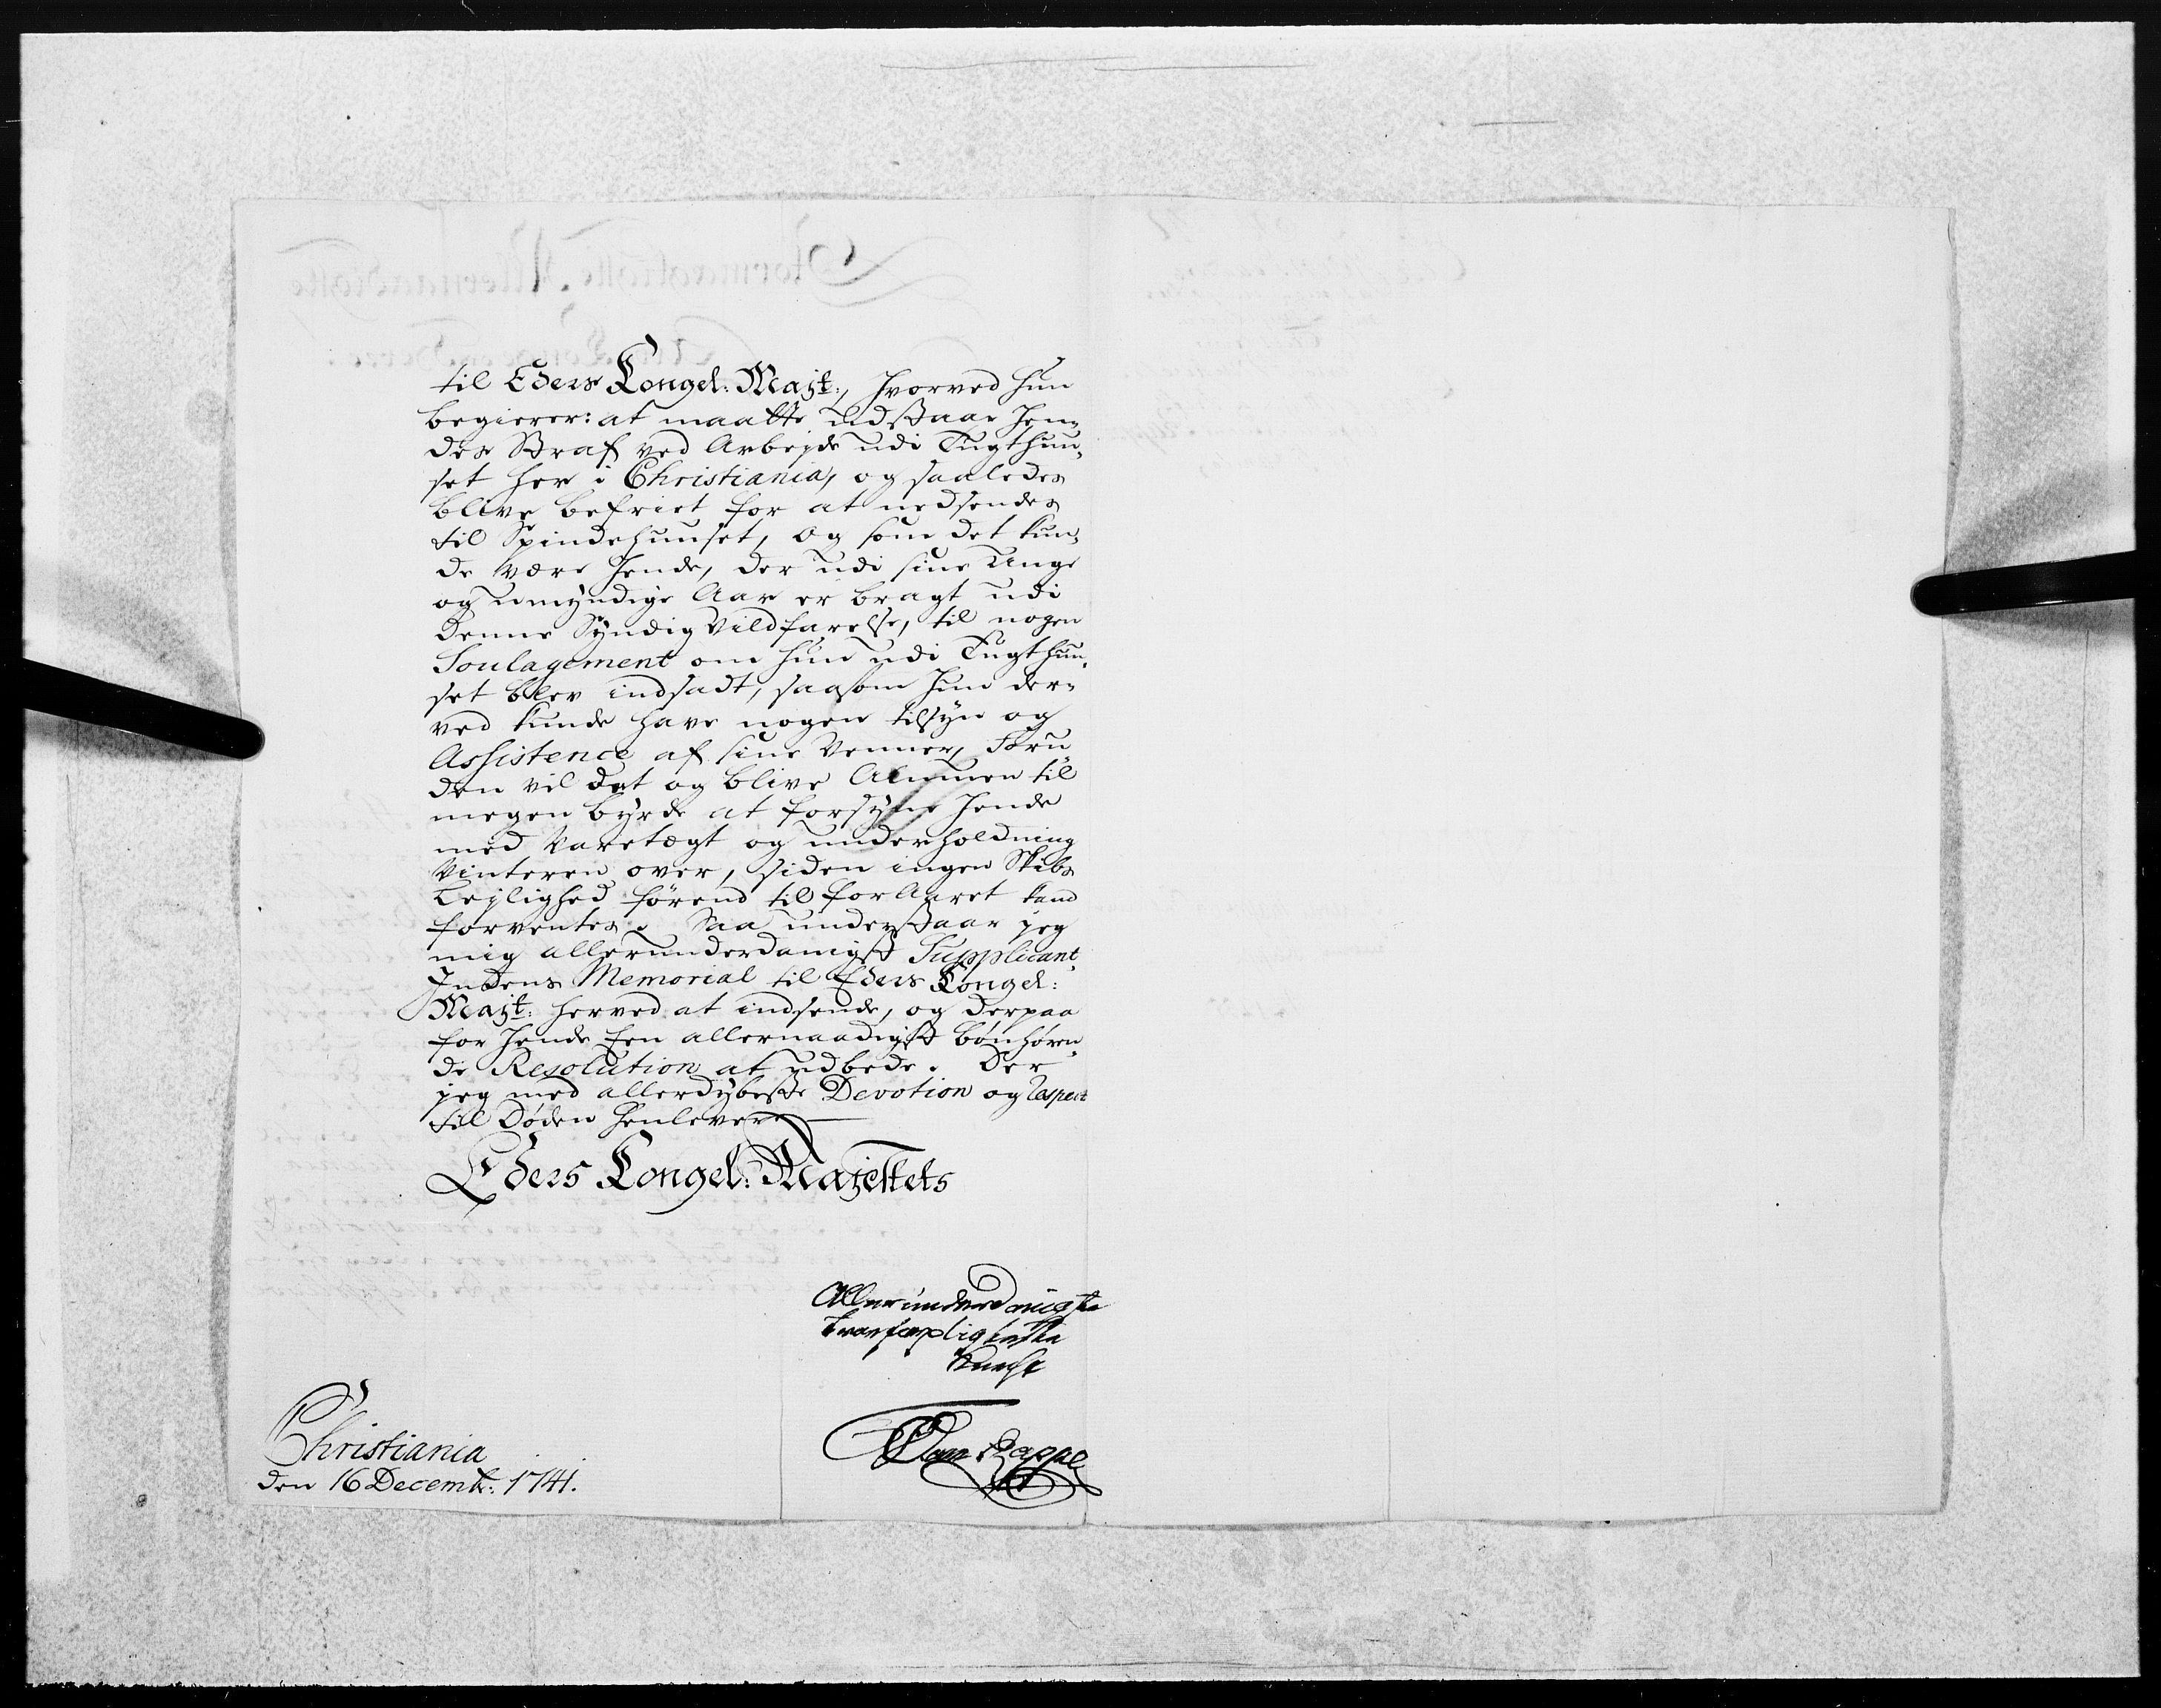 til Eders Kongel: Majt:, hvorved hun
begierer: at maatte udstaae hen-
des Straf ved Arbejde udi Tugthuu-
set her i Christiania, og saaledes
blive befriet for at nedsendes
til Spindehuuset, og som det kun-
de være hende, der udi sine Unge
og umyndige Aar er bragt udi
denne Syndig Vildfarelse, til nogen
Soulagement om hun udi Tugthuu-
set blev indsadt, saasom hun der-
ved kunde have nogen tilsyn og
Assistence af sine Venner, Foru-
den vil det og blive Almuen til
megen byrde at forsyne hende
med Varetægt og underholdning
Vinteren over, siden ingen Skibs
Lejlighed førend til for Aaret kand
forventes. Saa understaar jeg
mig allerunderdanigst Supplicant-
Indens Memorial til Eders Kongel:
Majt: herved at indsende, og derpaa
for hende Een allernaadigst bønhøren-
de Resolution at udbede. Der
jeg med allerdybeste Devotion og Respect
til Døden henlever
Eders Kongel: Majestets
Allerunderdanigste
troepligtigste
Knecht
Rappe
Christiania
den 16 Decembr: 1741.